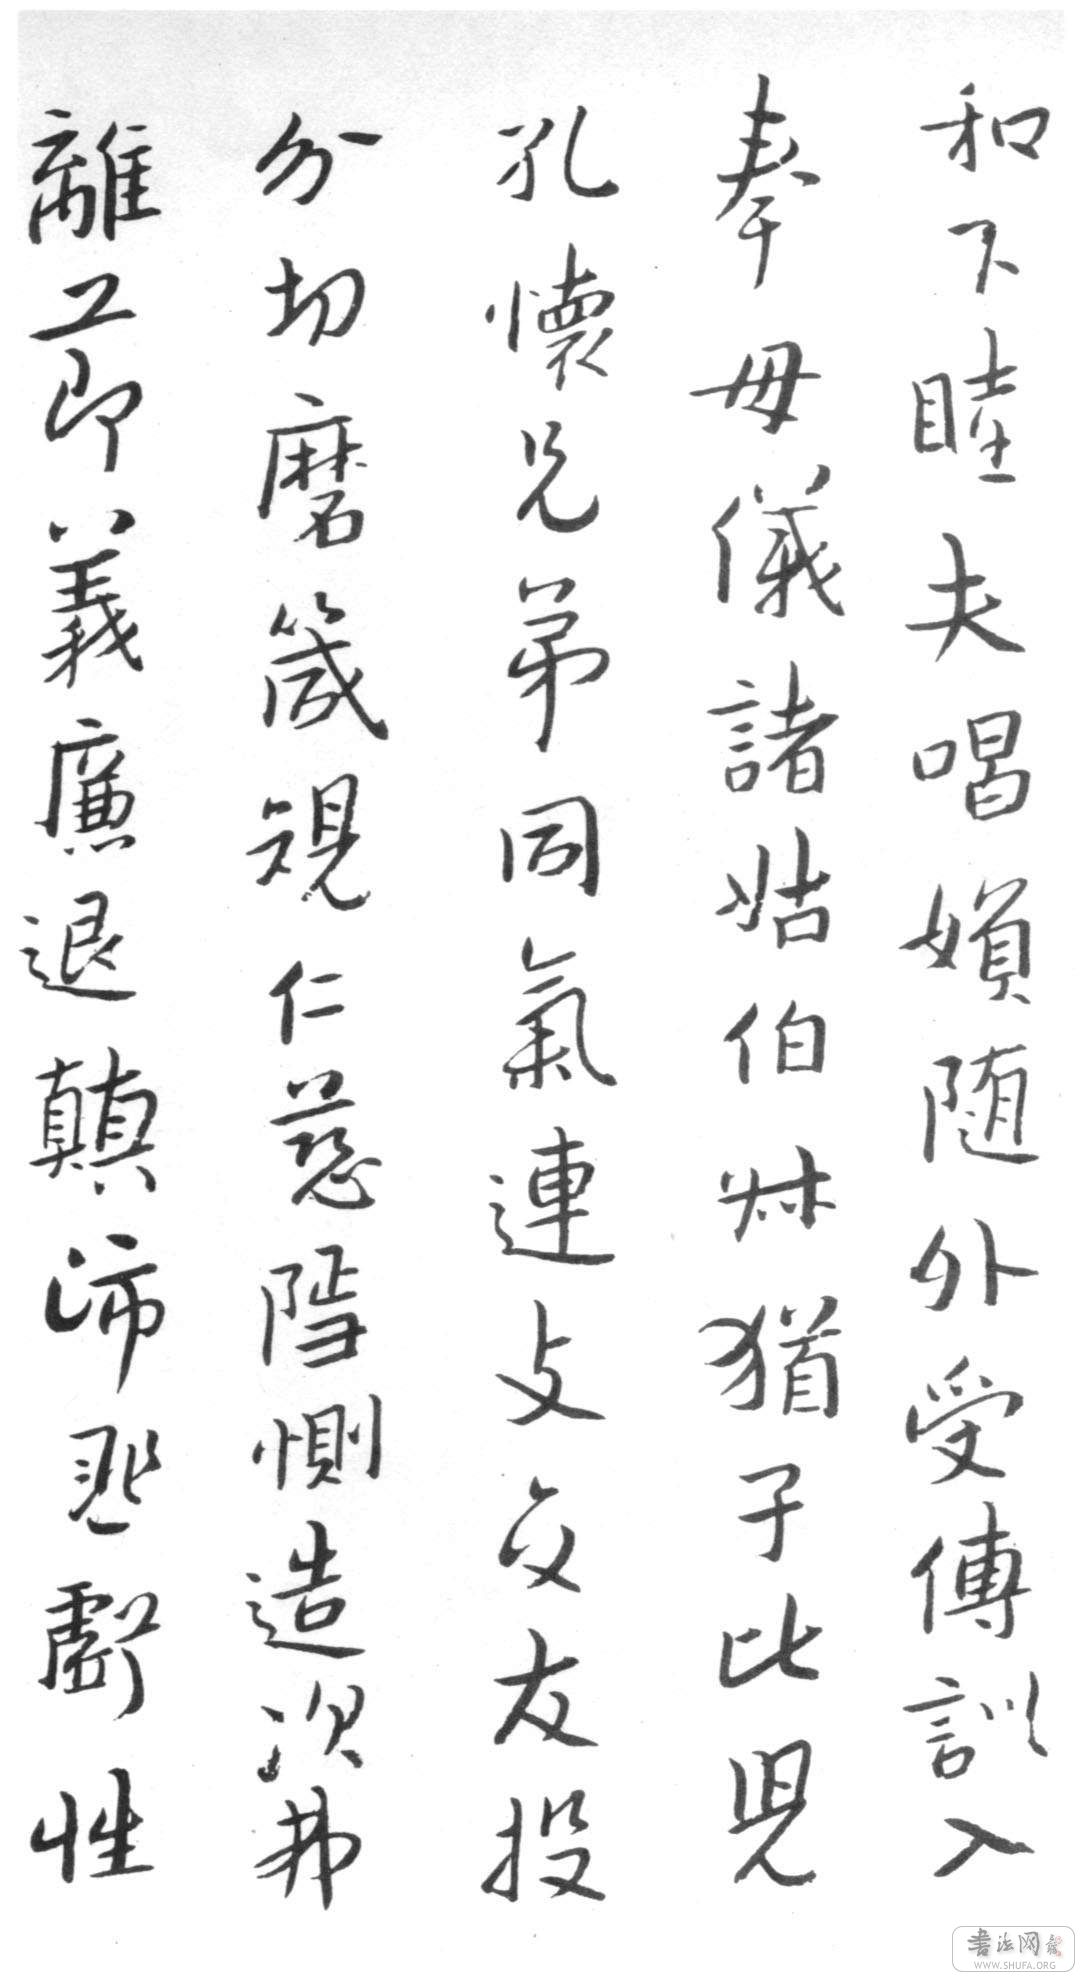 和下睦夫唱婦随外受傅訓入
奉母儀諸姑伯叔猶子比兒
孔懷兄弟同氣連支交友投
分切磨箴規仁慈隱惻造次弗
離工節義廉退顛沛匪虧性
書法网
WWW.SHUFA.ORG